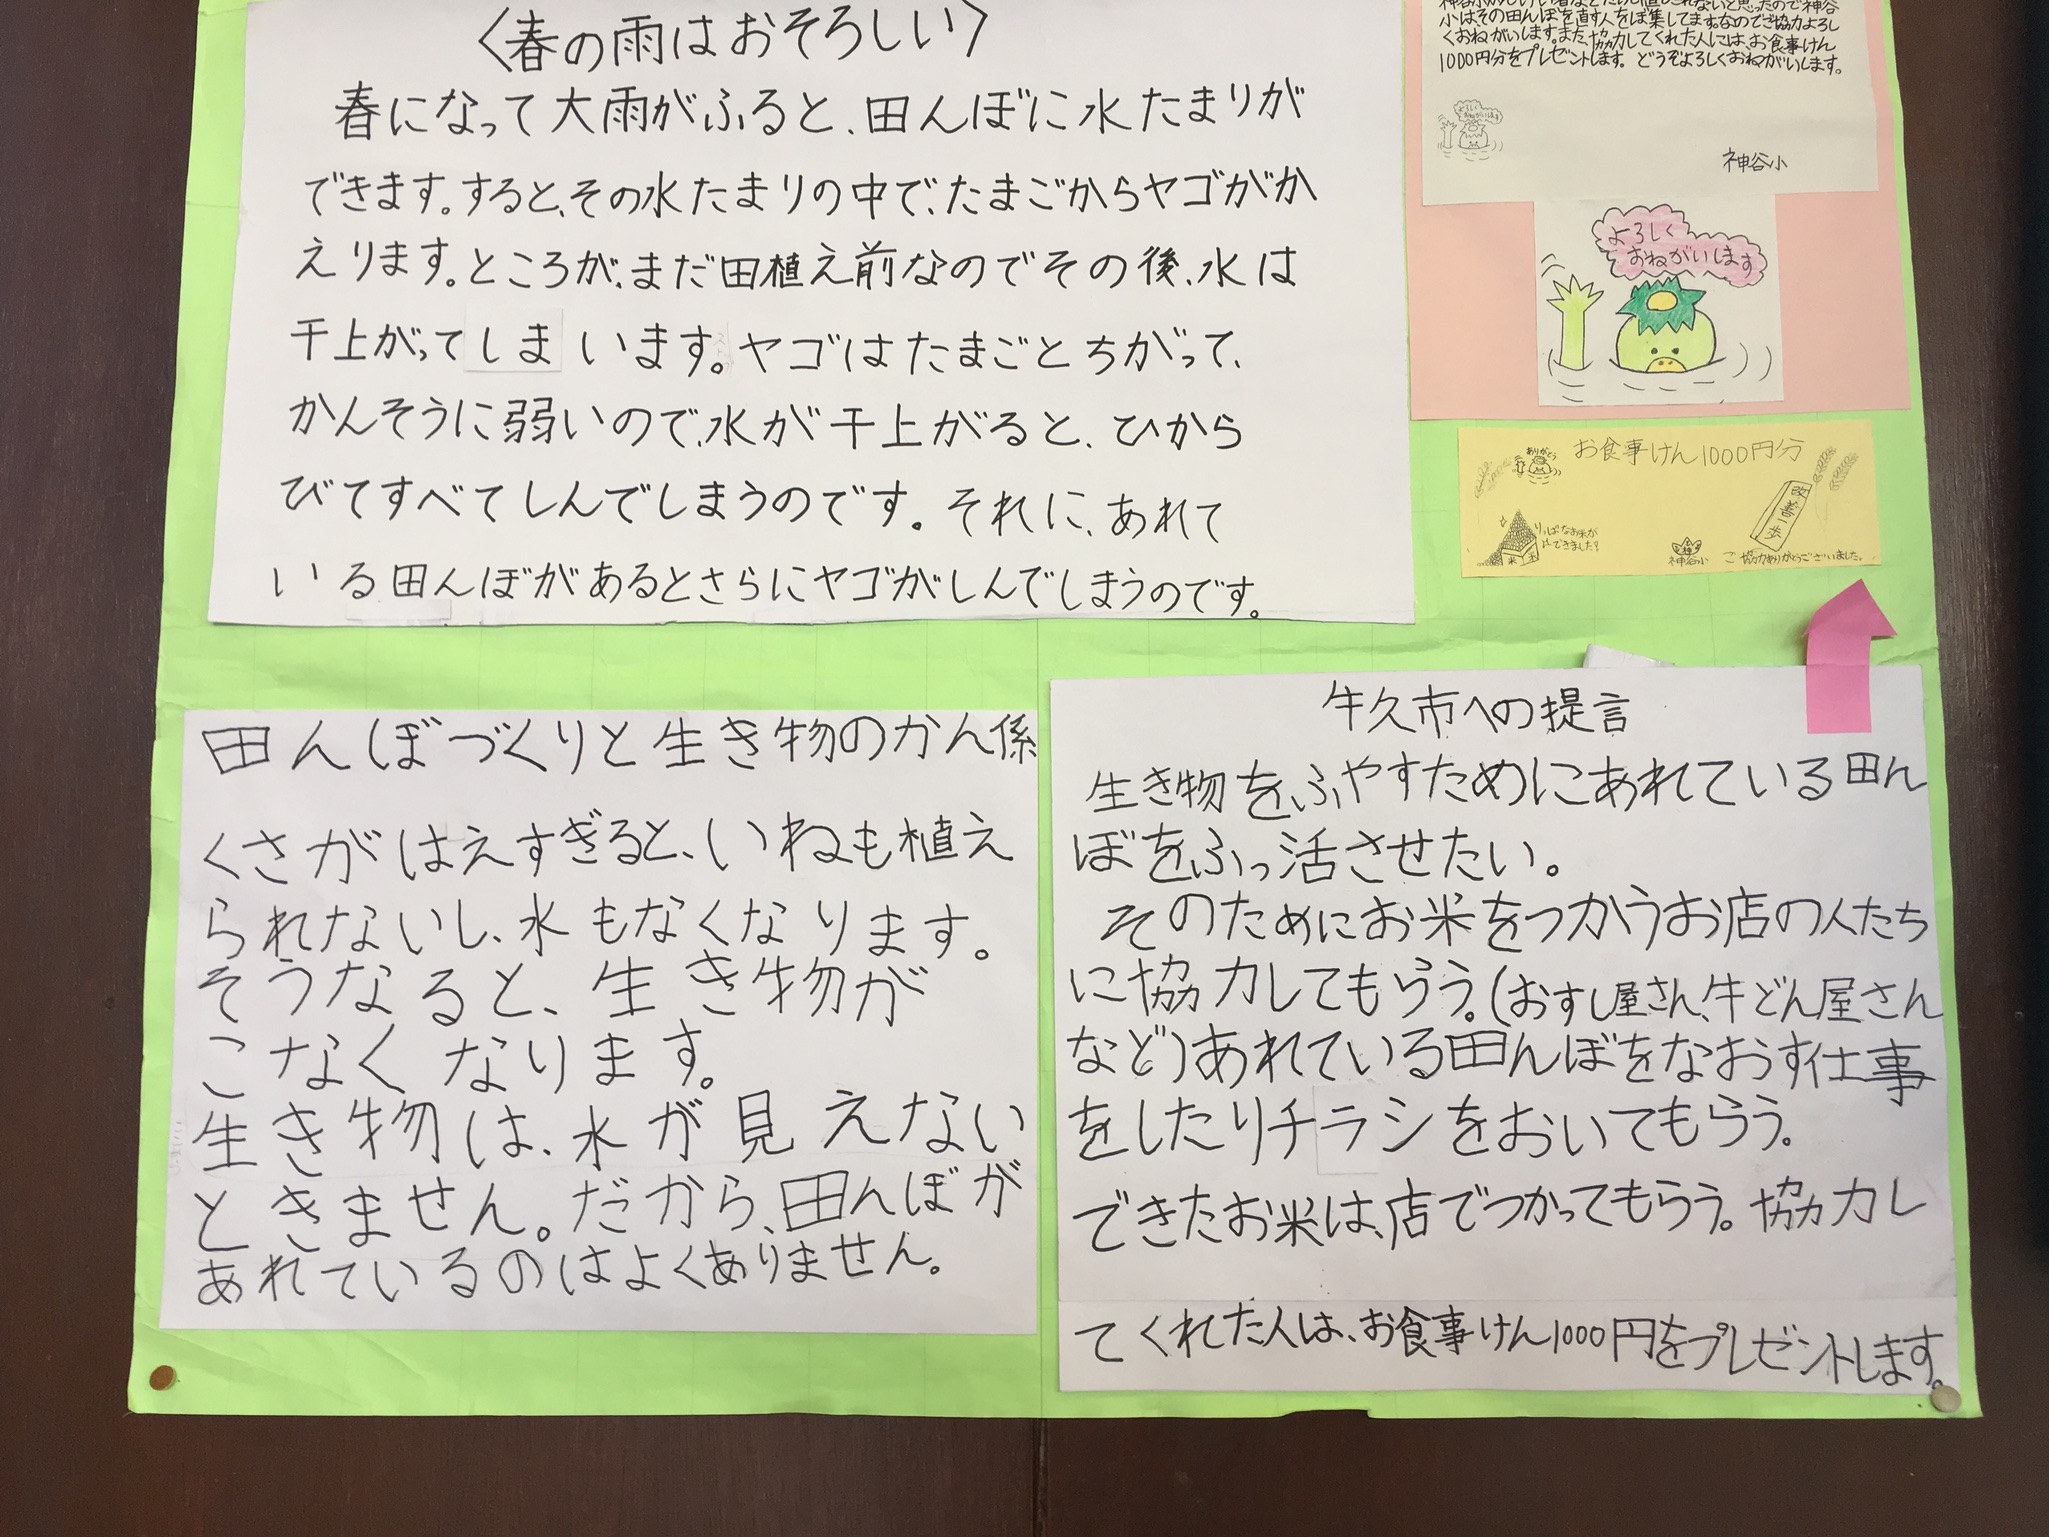 〈春の雨はおそろしい〉
春になって大雨がふると、田んぼに水たまりが
できます。すると、その水たまりの中で、たまごからヤゴがか
えります。ところが、まだ田植え前なのでその後、水は
干上がってしまいます。ヤゴはたまごとちがって、
かんそうに弱いので、水が干上がると、ひから
びてすべてしんでしまうのです。それに、あれて
いる田んぼがあるとさらにヤゴがしんでしまうのです。
小はその田んぼを直す人をぼ集してます。なのでご協力よろし
くおねがいします。また、協力してくれた人には、お食事けん
1000円分をプレゼントします。どうぞよろしくおねがいします。
よろしく
おねがいします
神谷小
よろしく
おねがいします
お食事けん1000円分
ありがとう
改善一歩
りっぱなお米が
できました!
米
神谷小
ご協力ありがとうございました。
田んぼづくりと生き物のかん係
くさがはえすぎると、いねも植え
られないし、水もなくなります。
そうなると、生き物が
こなくなります。
生き物は、水が見えない
ときません。だから、田んぼが
あれているのはよくありません。
牛久市への提言
生き物をふやすためにあれている田ん
ぼをふっ活させたい。
そのためにお米をつかうお店の人たち
に協力してもらう。(おすし屋さん、牛どん屋さん
など)あれている田んぼをなおす仕事
をしたりチラシをおいてもらう。
できたお米は、店でつかってもらう。協力し
てくれた人は、お食事けん1000円をプレゼントします。